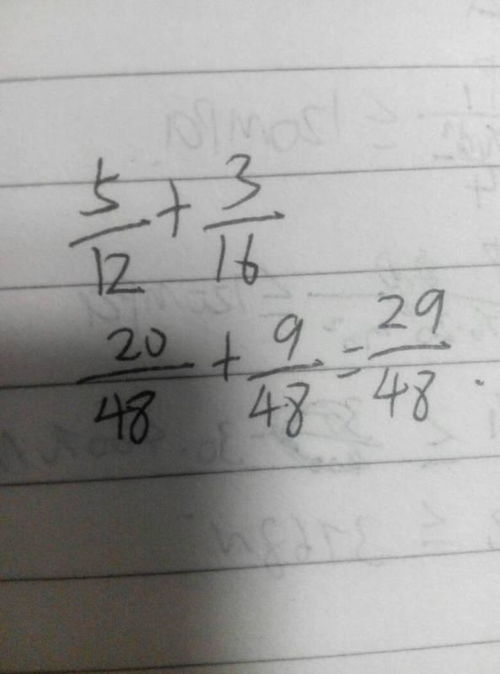 5/12 + 3/16
20/48 + 9/48 = 29/48.